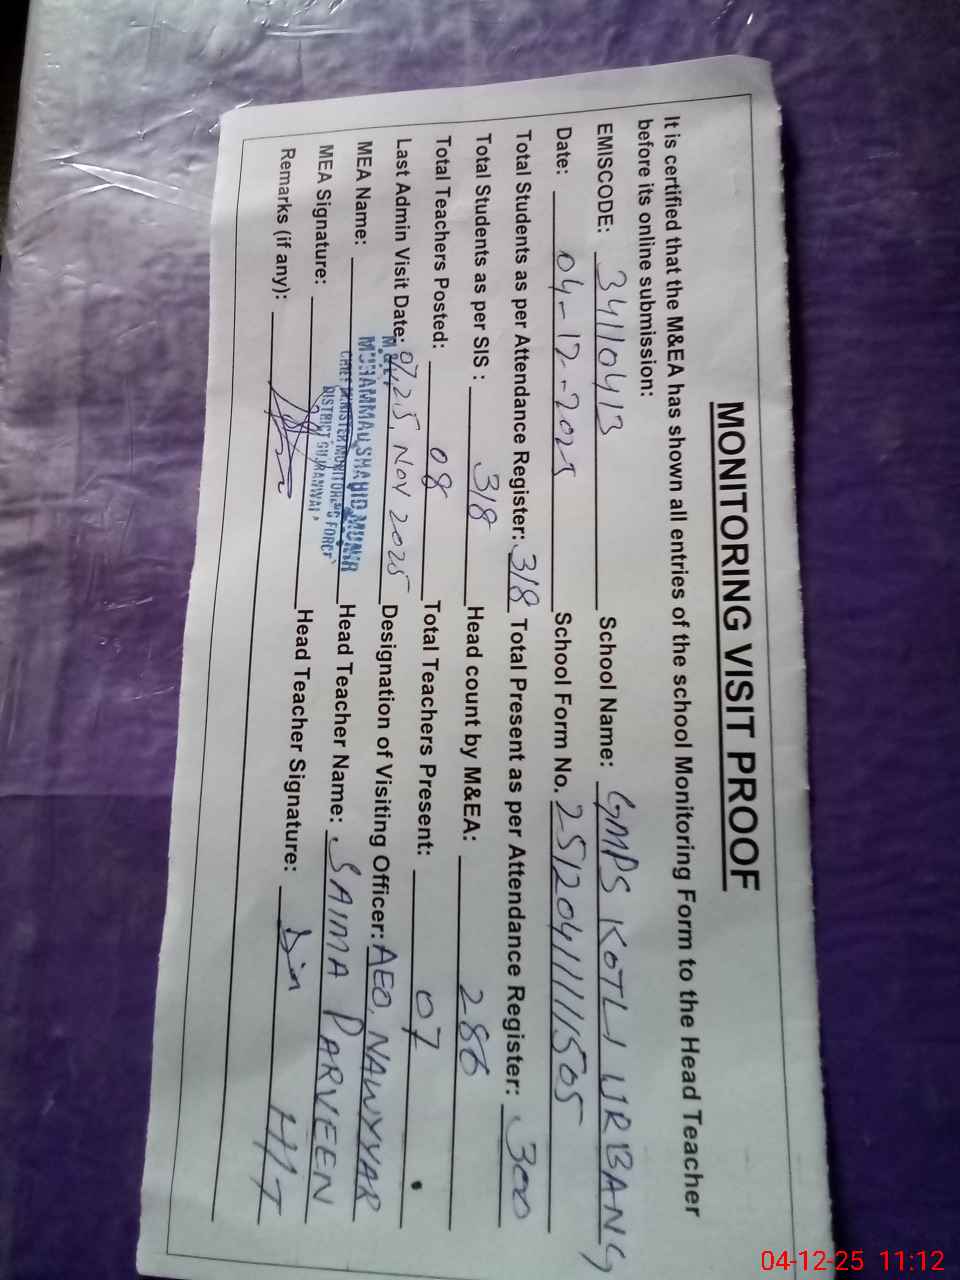 MONITORING VISIT PROOF
It is certified that the M&EA has shown all entries of the school Monitoring Form to the Head Teacher
before its online submission:
EMISCODE: 34110413 School Name: GMPS KOTLI URBANG
Date: 04-12-2025 School Form No. 2512041111505
Total Students as per Attendance Register: 318 Total Present as per Attendance Register: 300
Total Students as per SIS : 318 Head count by M&EA: 286
Total Teachers Posted: 08 Total Teachers Present: 07
Last Admin Visit Date: 07,25, NOV 2025 Designation of Visiting Officer: AEO, NAWYYAR
MEA Name: MUHAMMAD SHAHID MUNIR Head Teacher Name: SAIMA PARVEEN
CHIEF MINISTER MONITORING FORCE
DISTRICT GUJRANWALA
MEA Signature: Head Teacher Signature: HIT
Remarks (if any):
04-12-25 11:12